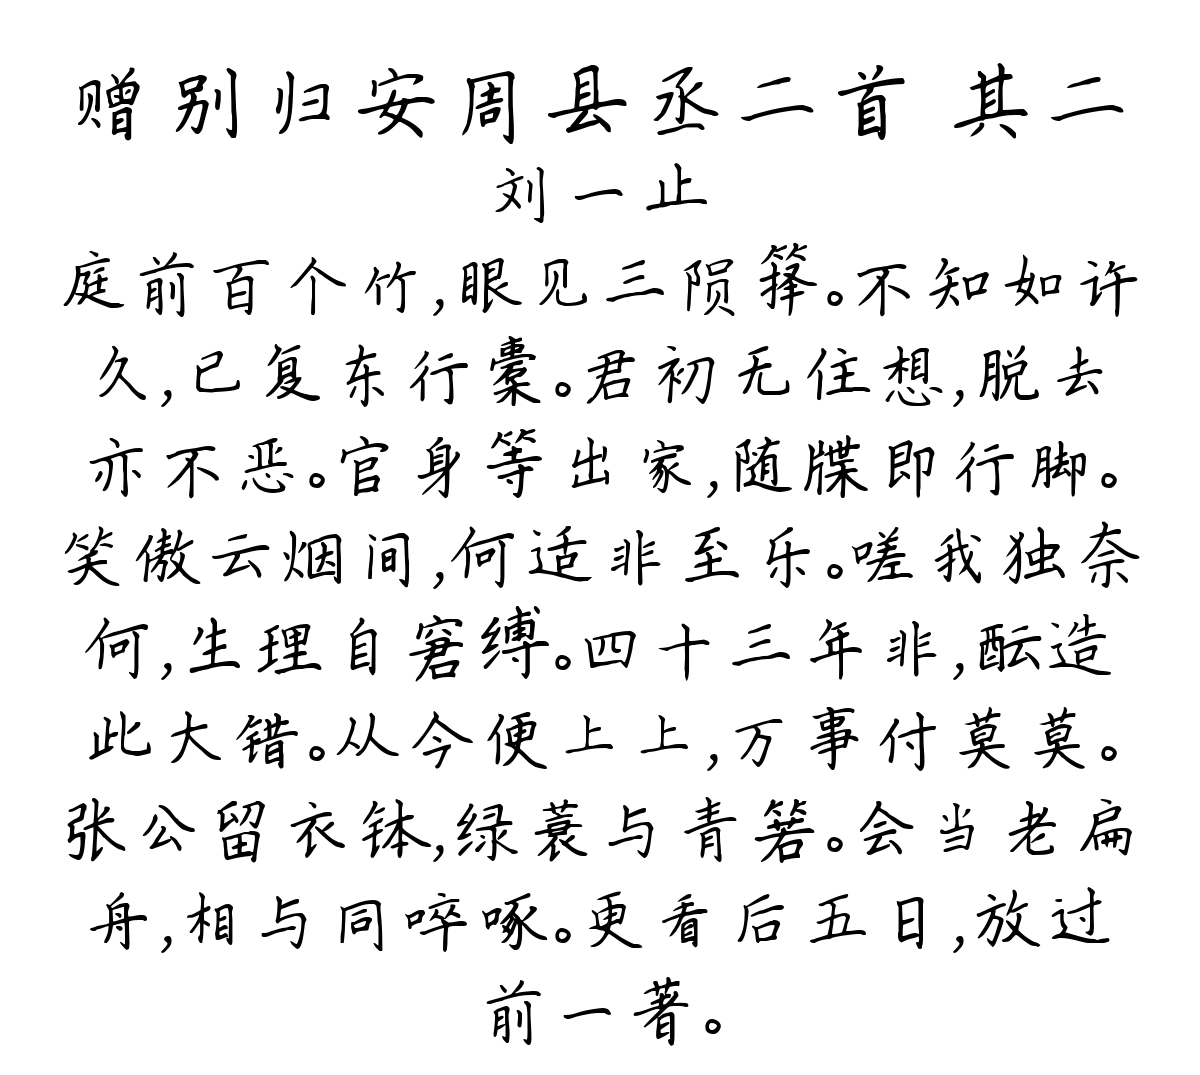 赠别归安周县丞二首 其二
刘一止
庭前百个竹,眼见三陨箨。不知如许
久,已复东行橐。君初无住想,脱去
亦不恶。官身等出家,随牒即行脚。
笑傲云烟间,何适非至乐。嗟我独奈
何,生理自窘缚。四十三年非,酝造
此大错。从今便上上,万事付莫莫。
张公留衣钵,绿蓑与青箬。会当老扁
舟,相与同啐啄。更看后五日,放过
前一著。